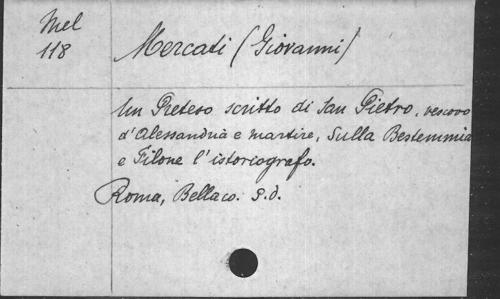 Mel
118
Mercati (Giovanni)
Un Preteso scritto di San Pietro, vescovo
d'Alessandria e martire, Sulla Bestemmia
e Filone l'istoriografo.
Roma, Bellaco. S.d.